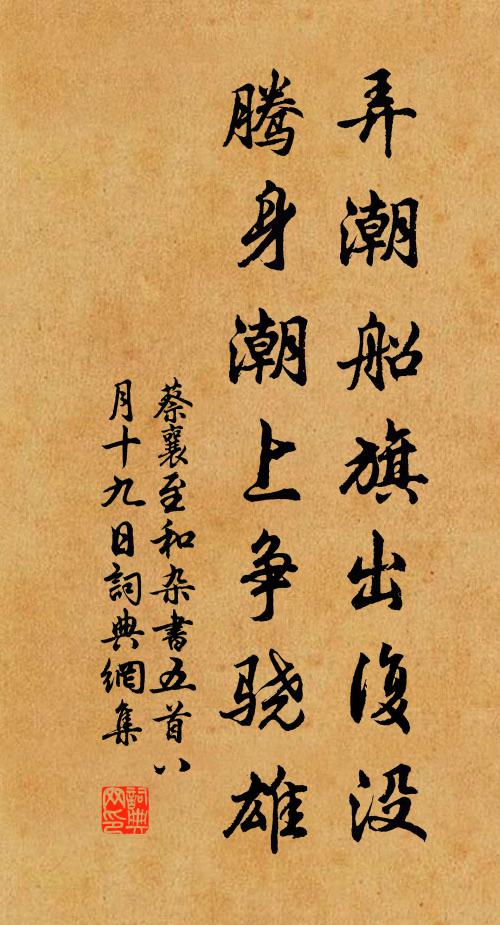 弄潮船旗出復没
腾身潮上争骁雄
蔡襄至和杂書五首八
月十九日詞典網集
詞典
网印